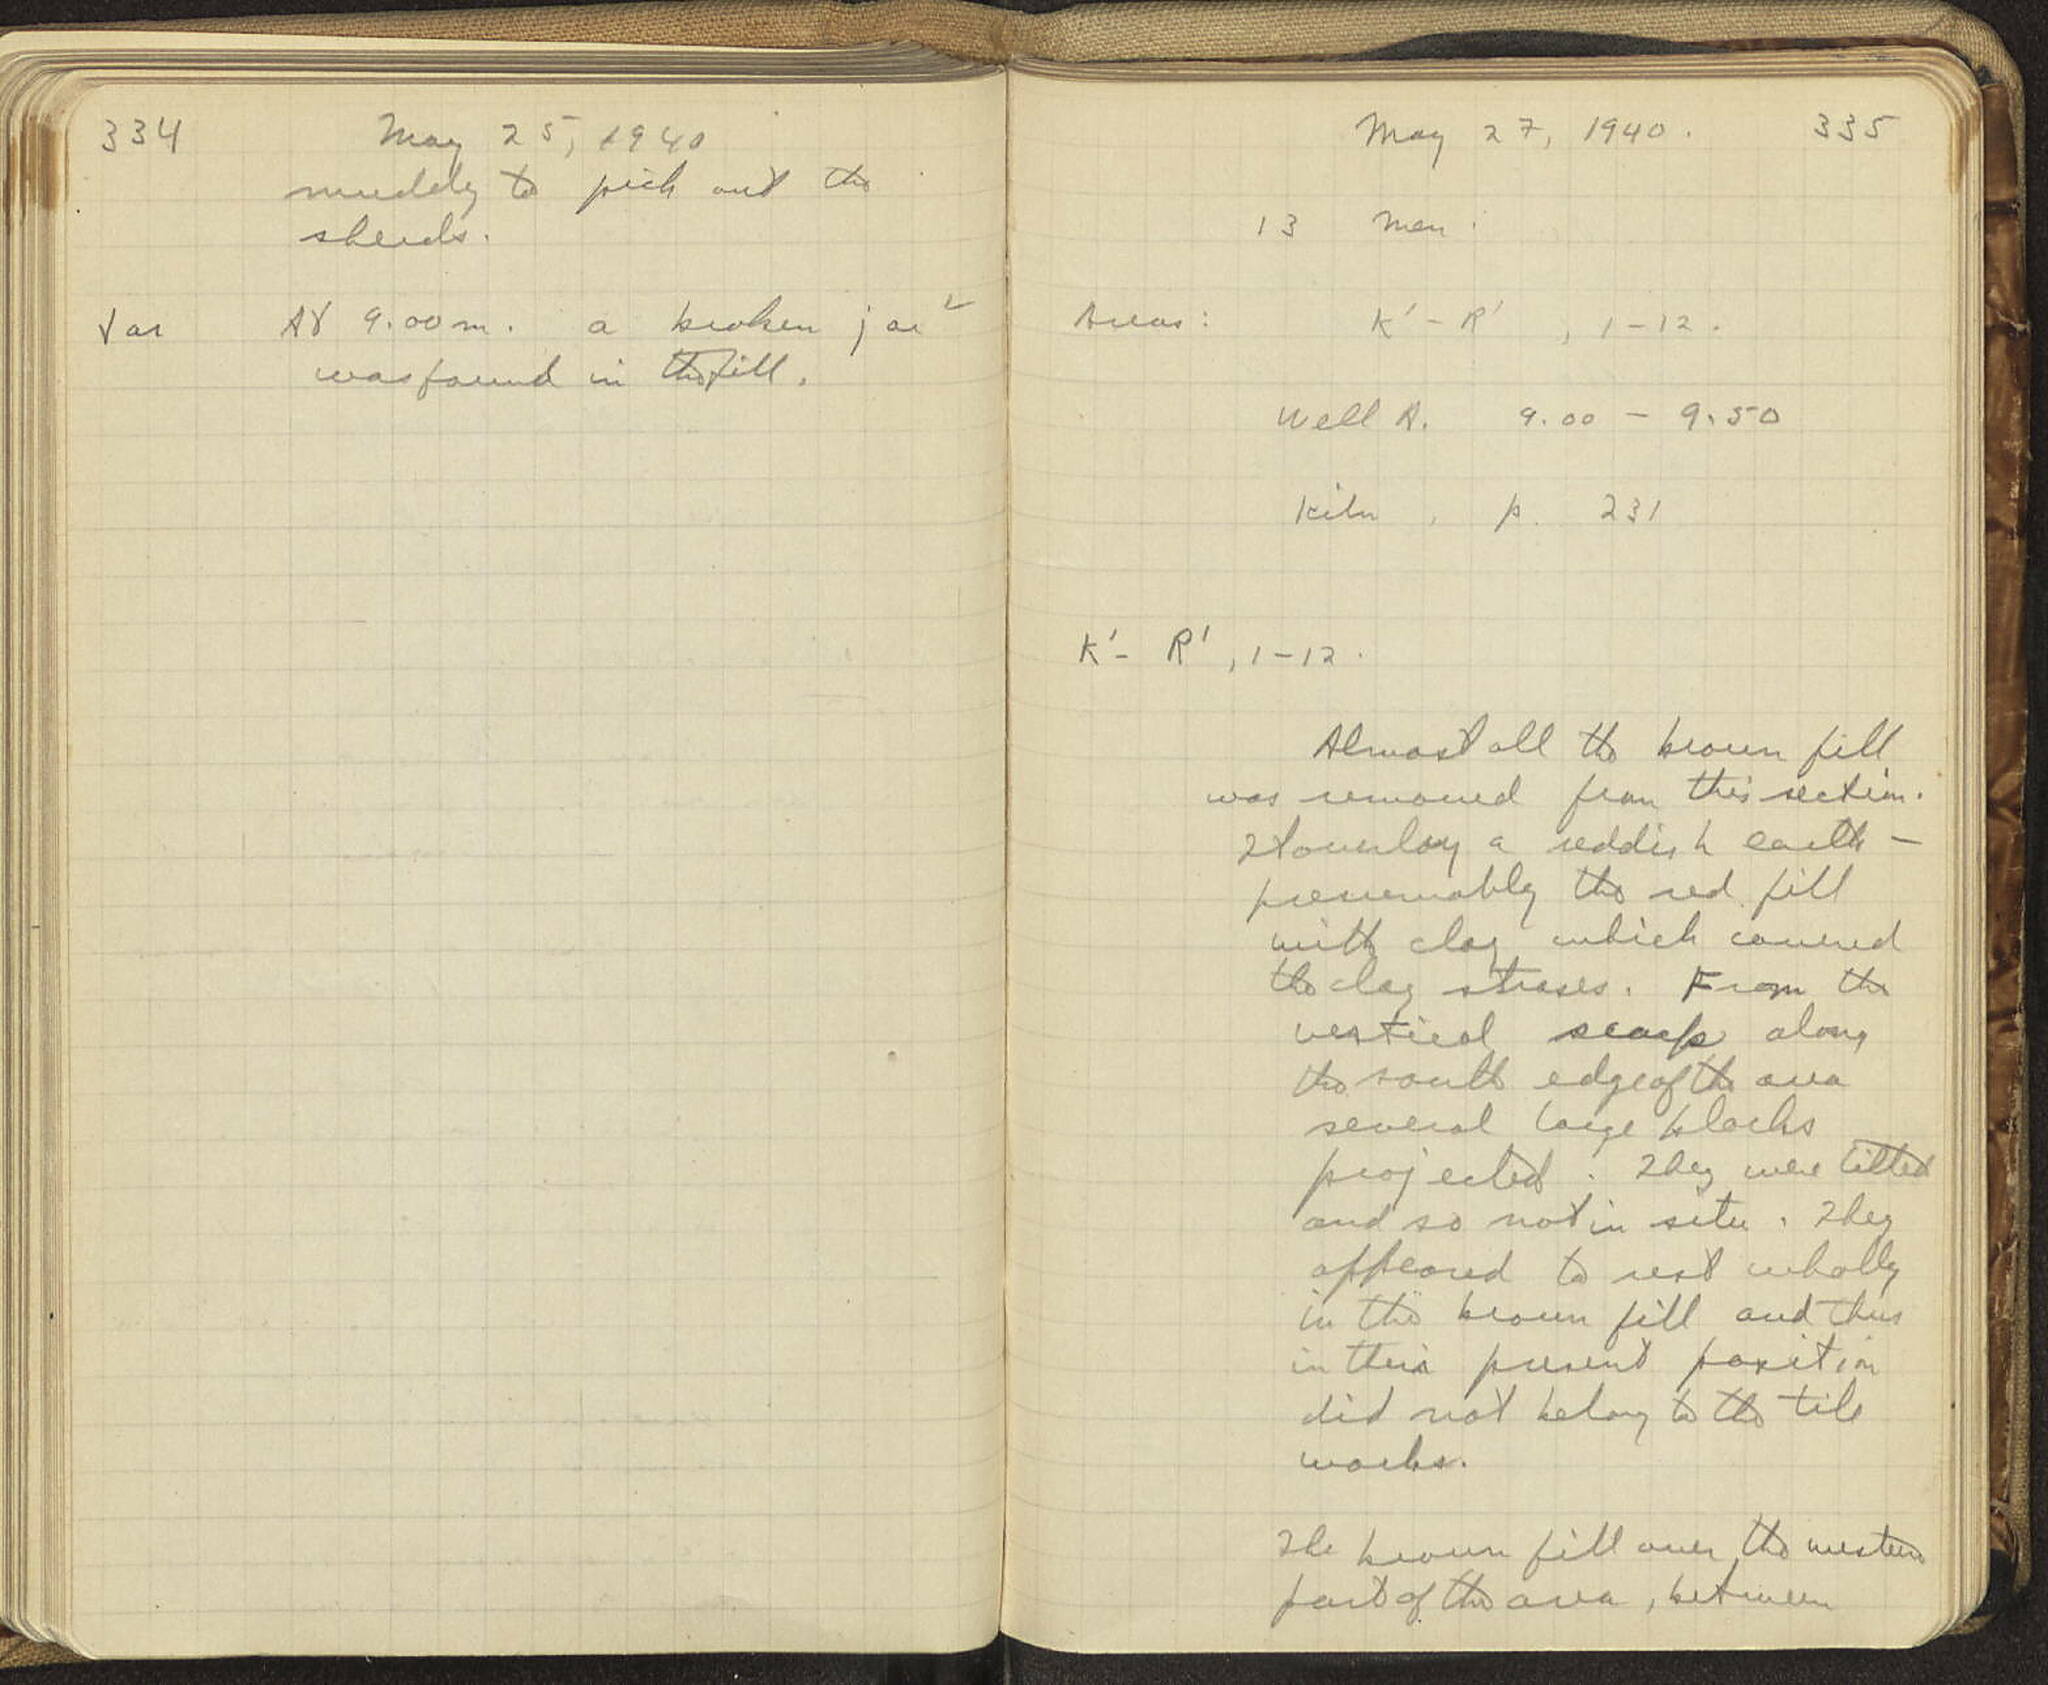 334 May 25, 1940
muddy to pick out the
sherds.
Jar At 9.00 m. a broken jar
was found in the fill.
May 27, 1940. 335
13 men:
Areas: K' - R', 1-12.
Well A. 9.00 - 9.50
Kiln, p. 231
K' - R', 1-12.
Almost all the brown fill
was removed from this section.
It overlay a reddish earth -
presumably the red fill
with clay which covered
the clay stroses. From the
vertical scarp along
the south edge of the area
several large blocks
projected. They were tilted
and so not in situ. They
appeared to rest wholly
in the brown fill and thus
in their present position
did not belong to the tile
works.
The brown fill over the western
part of the area, between